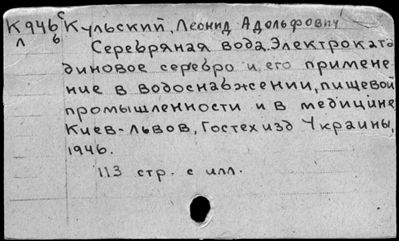 К946 с Кульский, Леонид Адольфович
л в Серебряная вода. Электрокато
диновое серебро и его примене-
ние в водоснабжении, пищевой
промышленности и в медицине
Киев-Львов, Гостехизд Украины,
1946.
113 стр. с илл.